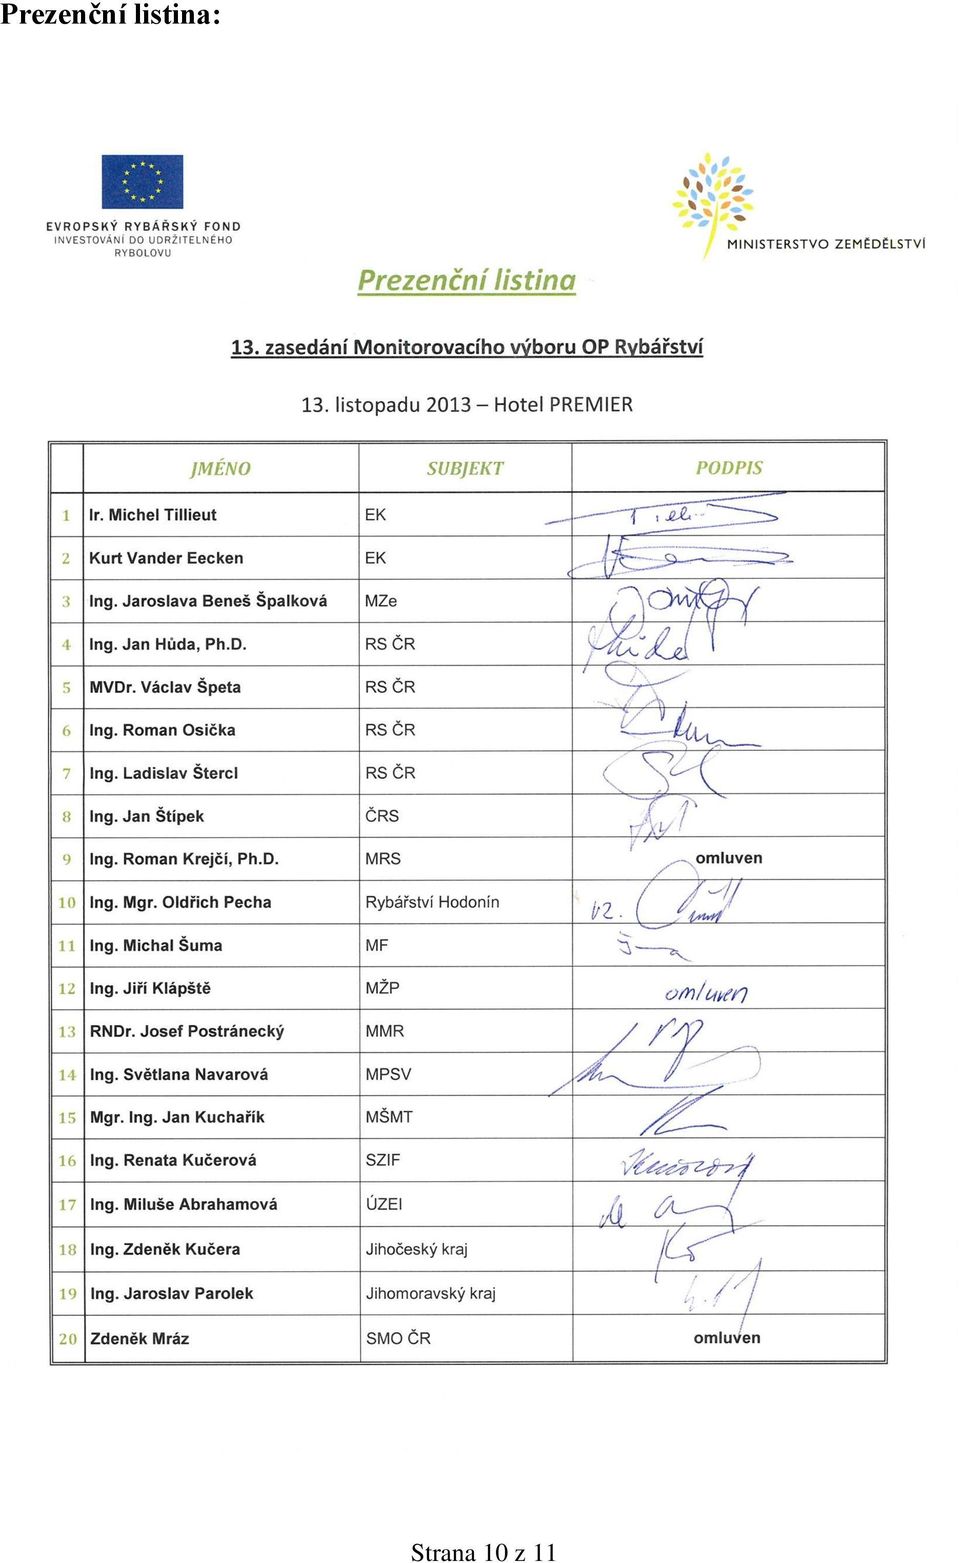 Prezenční listina:
EVROPSKÝ RYBÁŘSKÝ FOND
INVESTOVÁNÍ DO UDRŽITELNÉHO
RYBOLOVU
MINISTERSTVO ZEMĚDĚLSTVÍ
Prezenční listina
13. zasedání Monitorovacího výboru OP Rybářství
13. listopadu 2013 – Hotel PREMIER
JMÉNO SUBJEKT PODPIS
1 Ir. Michel Tillieut EK
2 Kurt Vander Eecken EK
3 Ing. Jaroslava Beneš Špalková MZe
4 Ing. Jan Hůda, Ph.D. RS ČR
5 MVDr. Václav Špeta RS ČR
6 Ing. Roman Osička RS ČR
7 Ing. Ladislav Štercl RS ČR
8 Ing. Jan Štípek ČRS
9 Ing. Roman Krejčí, Ph.D. MRS omluven
10 Ing. Mgr. Oldřich Pecha Rybářství Hodonín vz.
11 Ing. Michal Šuma MF
12 Ing. Jiří Klápště MŽP omluven
13 RNDr. Josef Postránecký MMR
14 Ing. Světlana Navarová MPSV
15 Mgr. Ing. Jan Kuchařík MŠMT
16 Ing. Renata Kučerová SZIF Kučerová
17 Ing. Miluše Abrahamová ÚZEI
18 Ing. Zdeněk Kučera Jihočeský kraj
19 Ing. Jaroslav Parolek Jihomoravský kraj
20 Zdeněk Mráz SMO ČR omluven
Strana 10 z 11